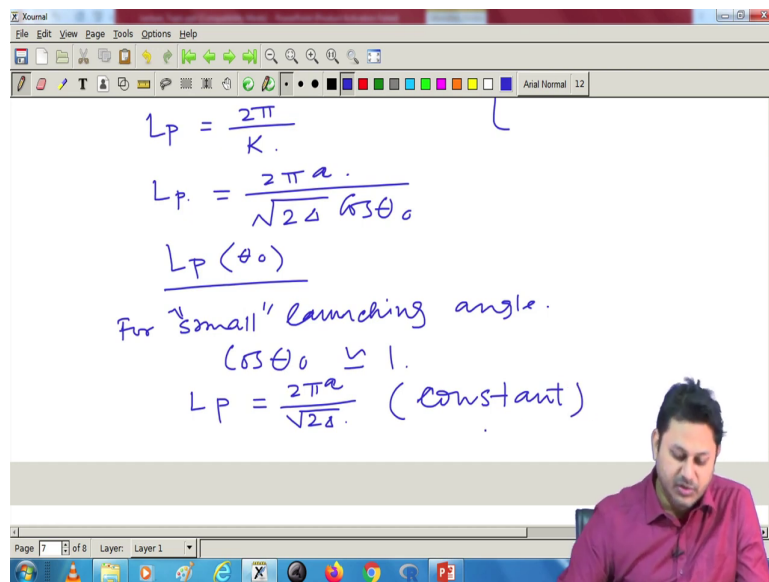 Xournal
File Edit View Page Tools Options Help
Arial Normal 12
Lp = 2π / K.
Lp. = 2πa. / √2Δ Cosθ₀
Lp (θ₀)
For "small" launching angle.
Cosθ₀ ≃ 1.
Lp = 2πa / √2Δ. (constant)
Page 7 of 8 Layer: Layer 1